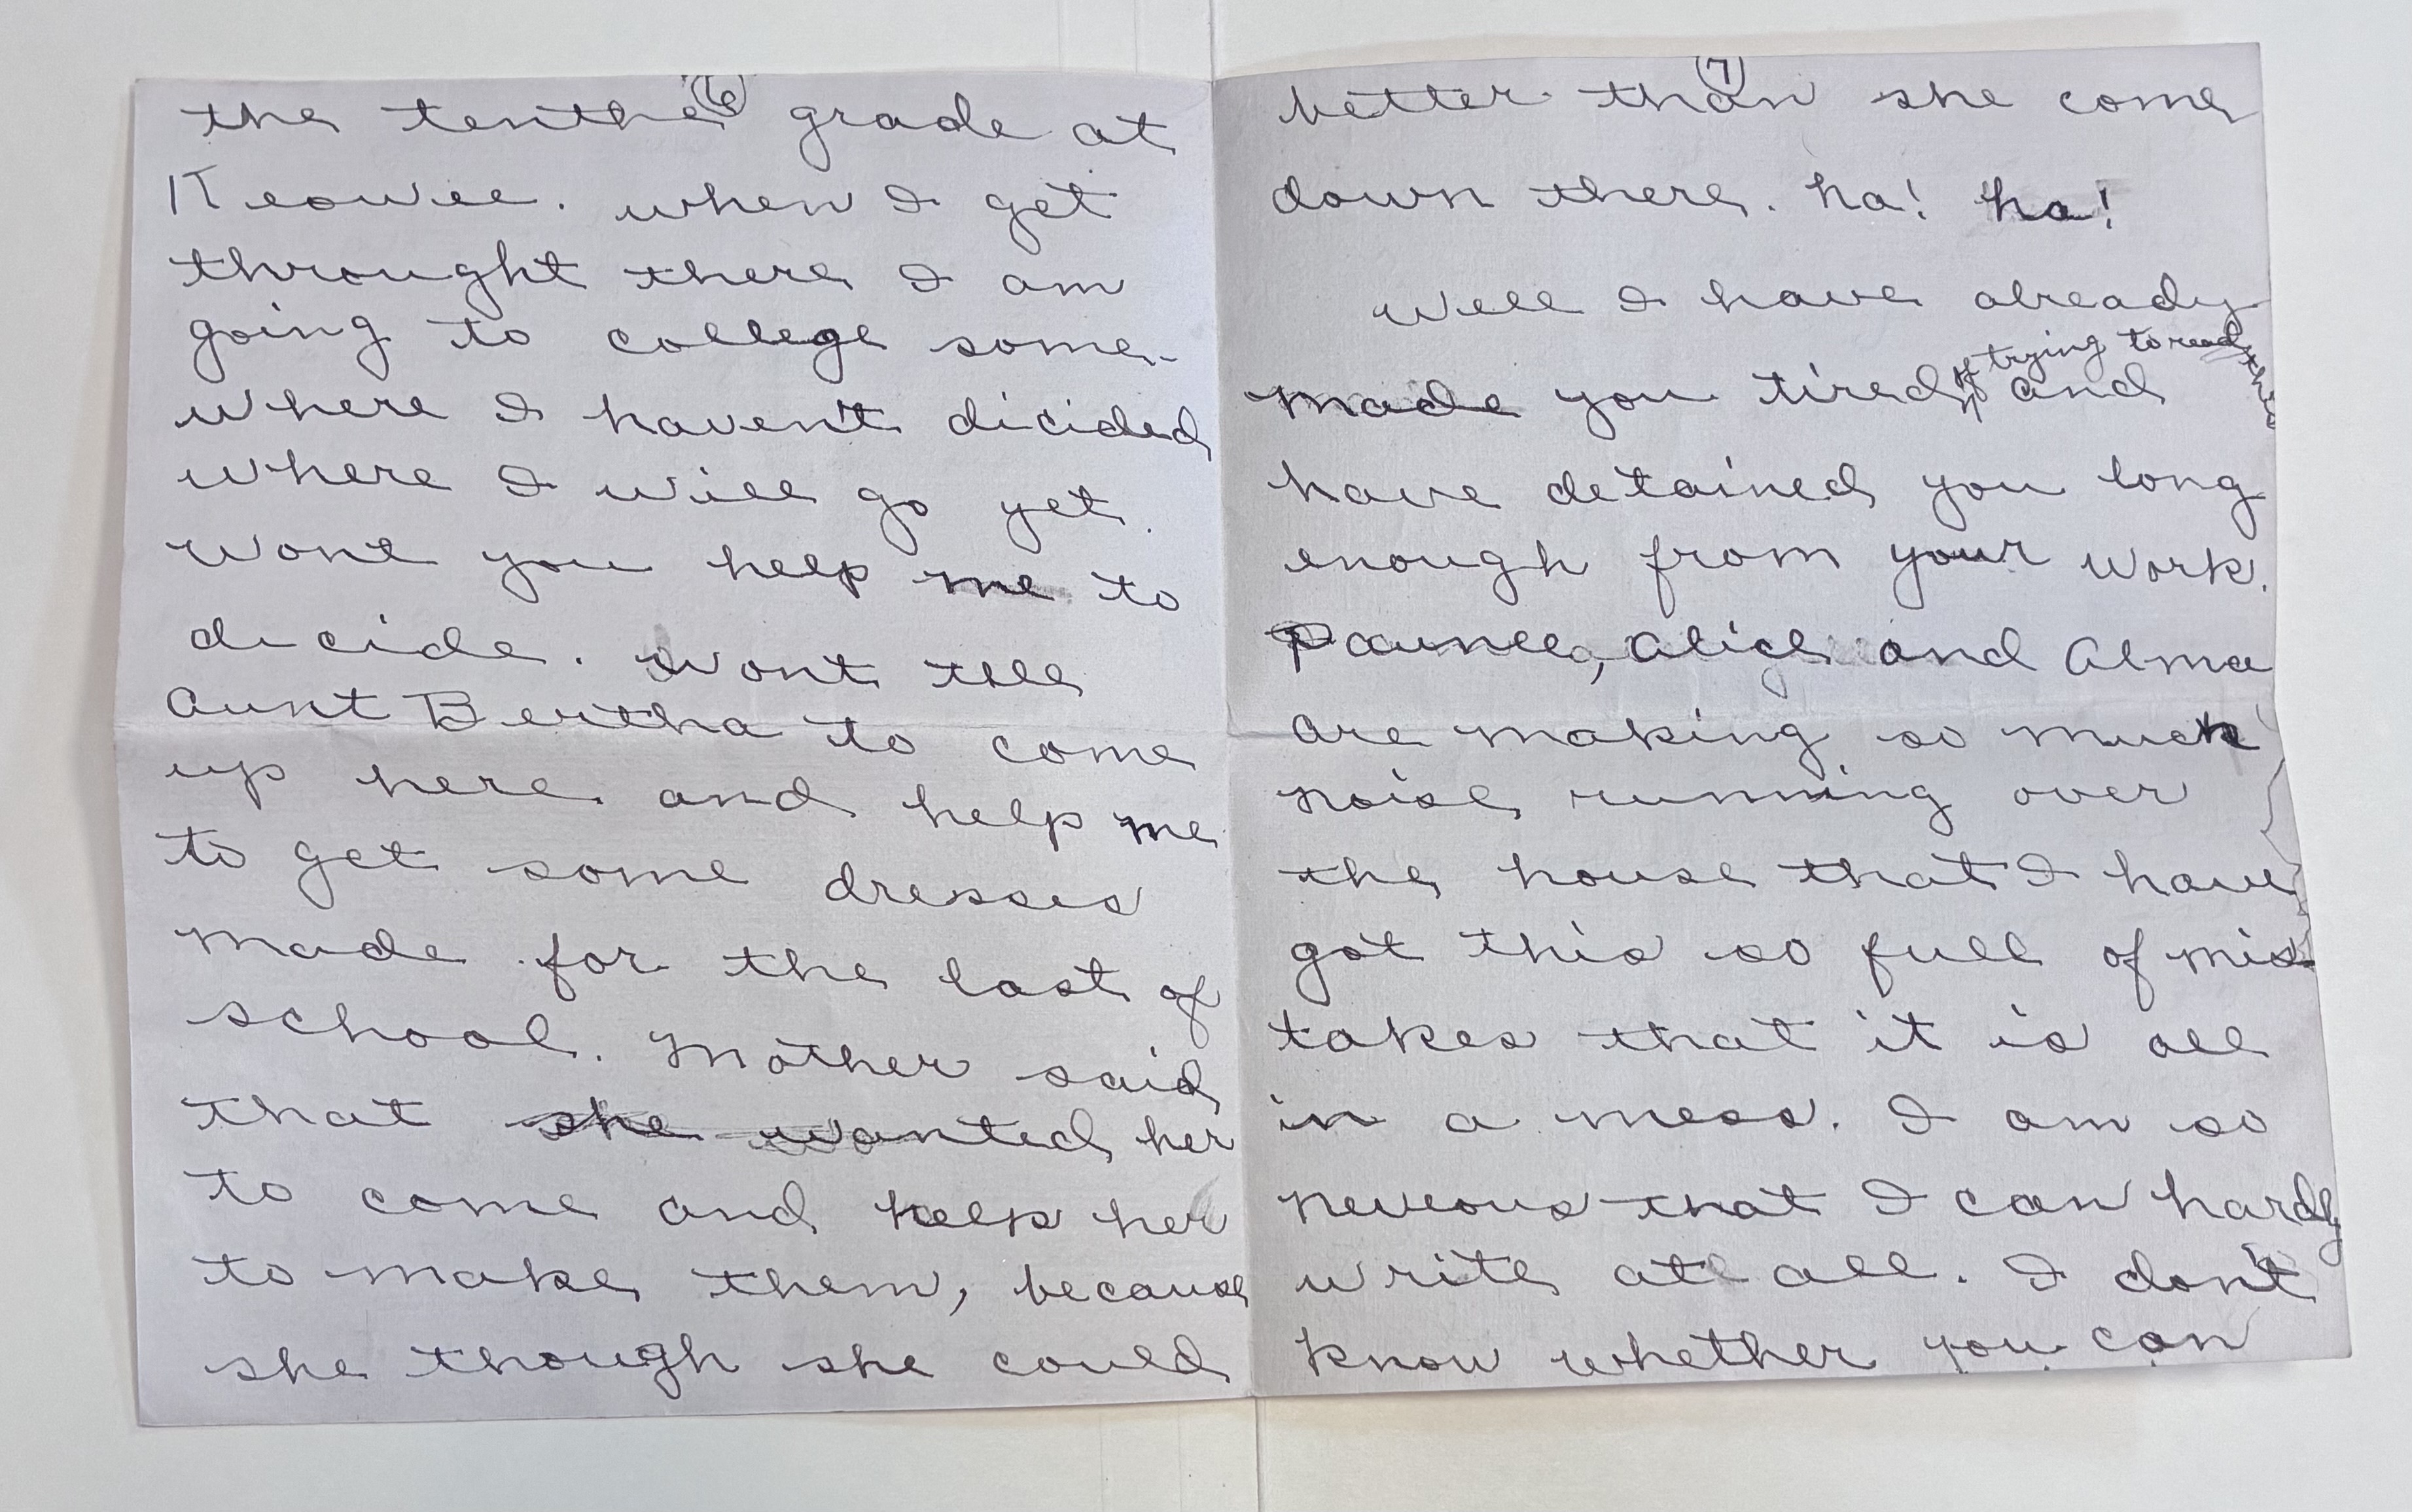 (6)
the tenthe grade at
Keowee. when I get
throught there I am
going to college some-
where I haven't dicided
where I will go yet.
Wont you help me to
dicide. Wont tell
Aunt Bertha to come
up here and help me
to get some dresses
made for the last of
school. Mother said
that she wanted her
to come and help her
to make them, because
she though she could
(7)
better than she come
down there. ha! ha!
Well I have already
trying to read this
made you tired of and
have detained you long
enough from your work.
alice and Alma
are making so much
noise running over
the house that I have
got this so full of mis-
takes that it is all
in a mess. I am so
neveous that I can hardly
write at all. I don't
know whether you can